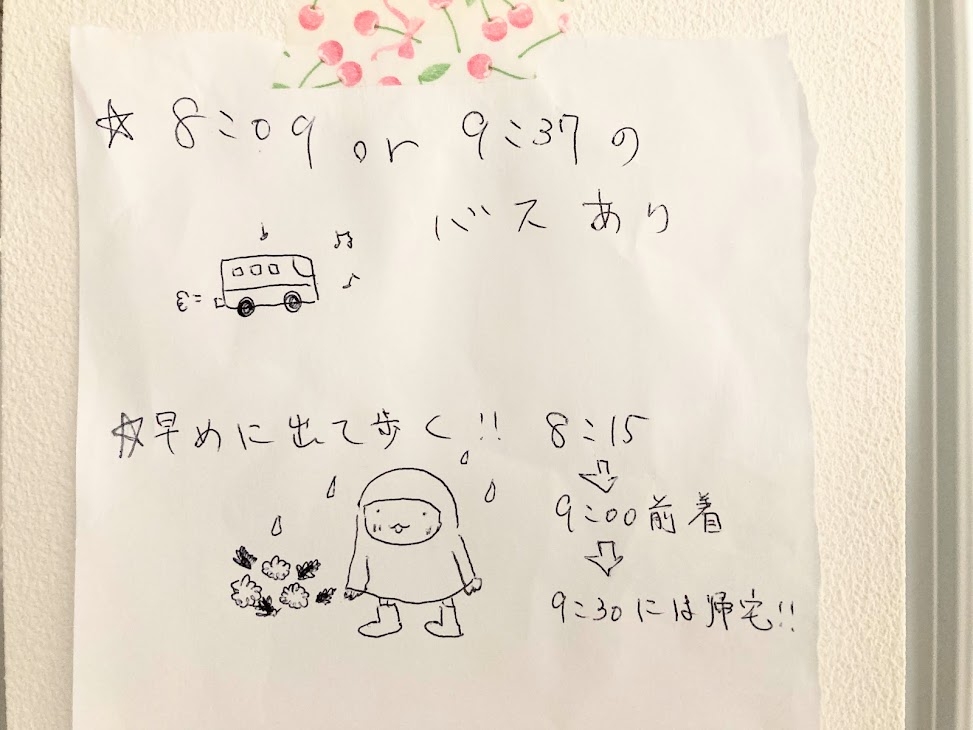 ☆ 8:09 or 9:37の
バスあり
☆早めに出て歩く!! 8:15
⇩
9:00前着
⇩
9:30には帰宅!!